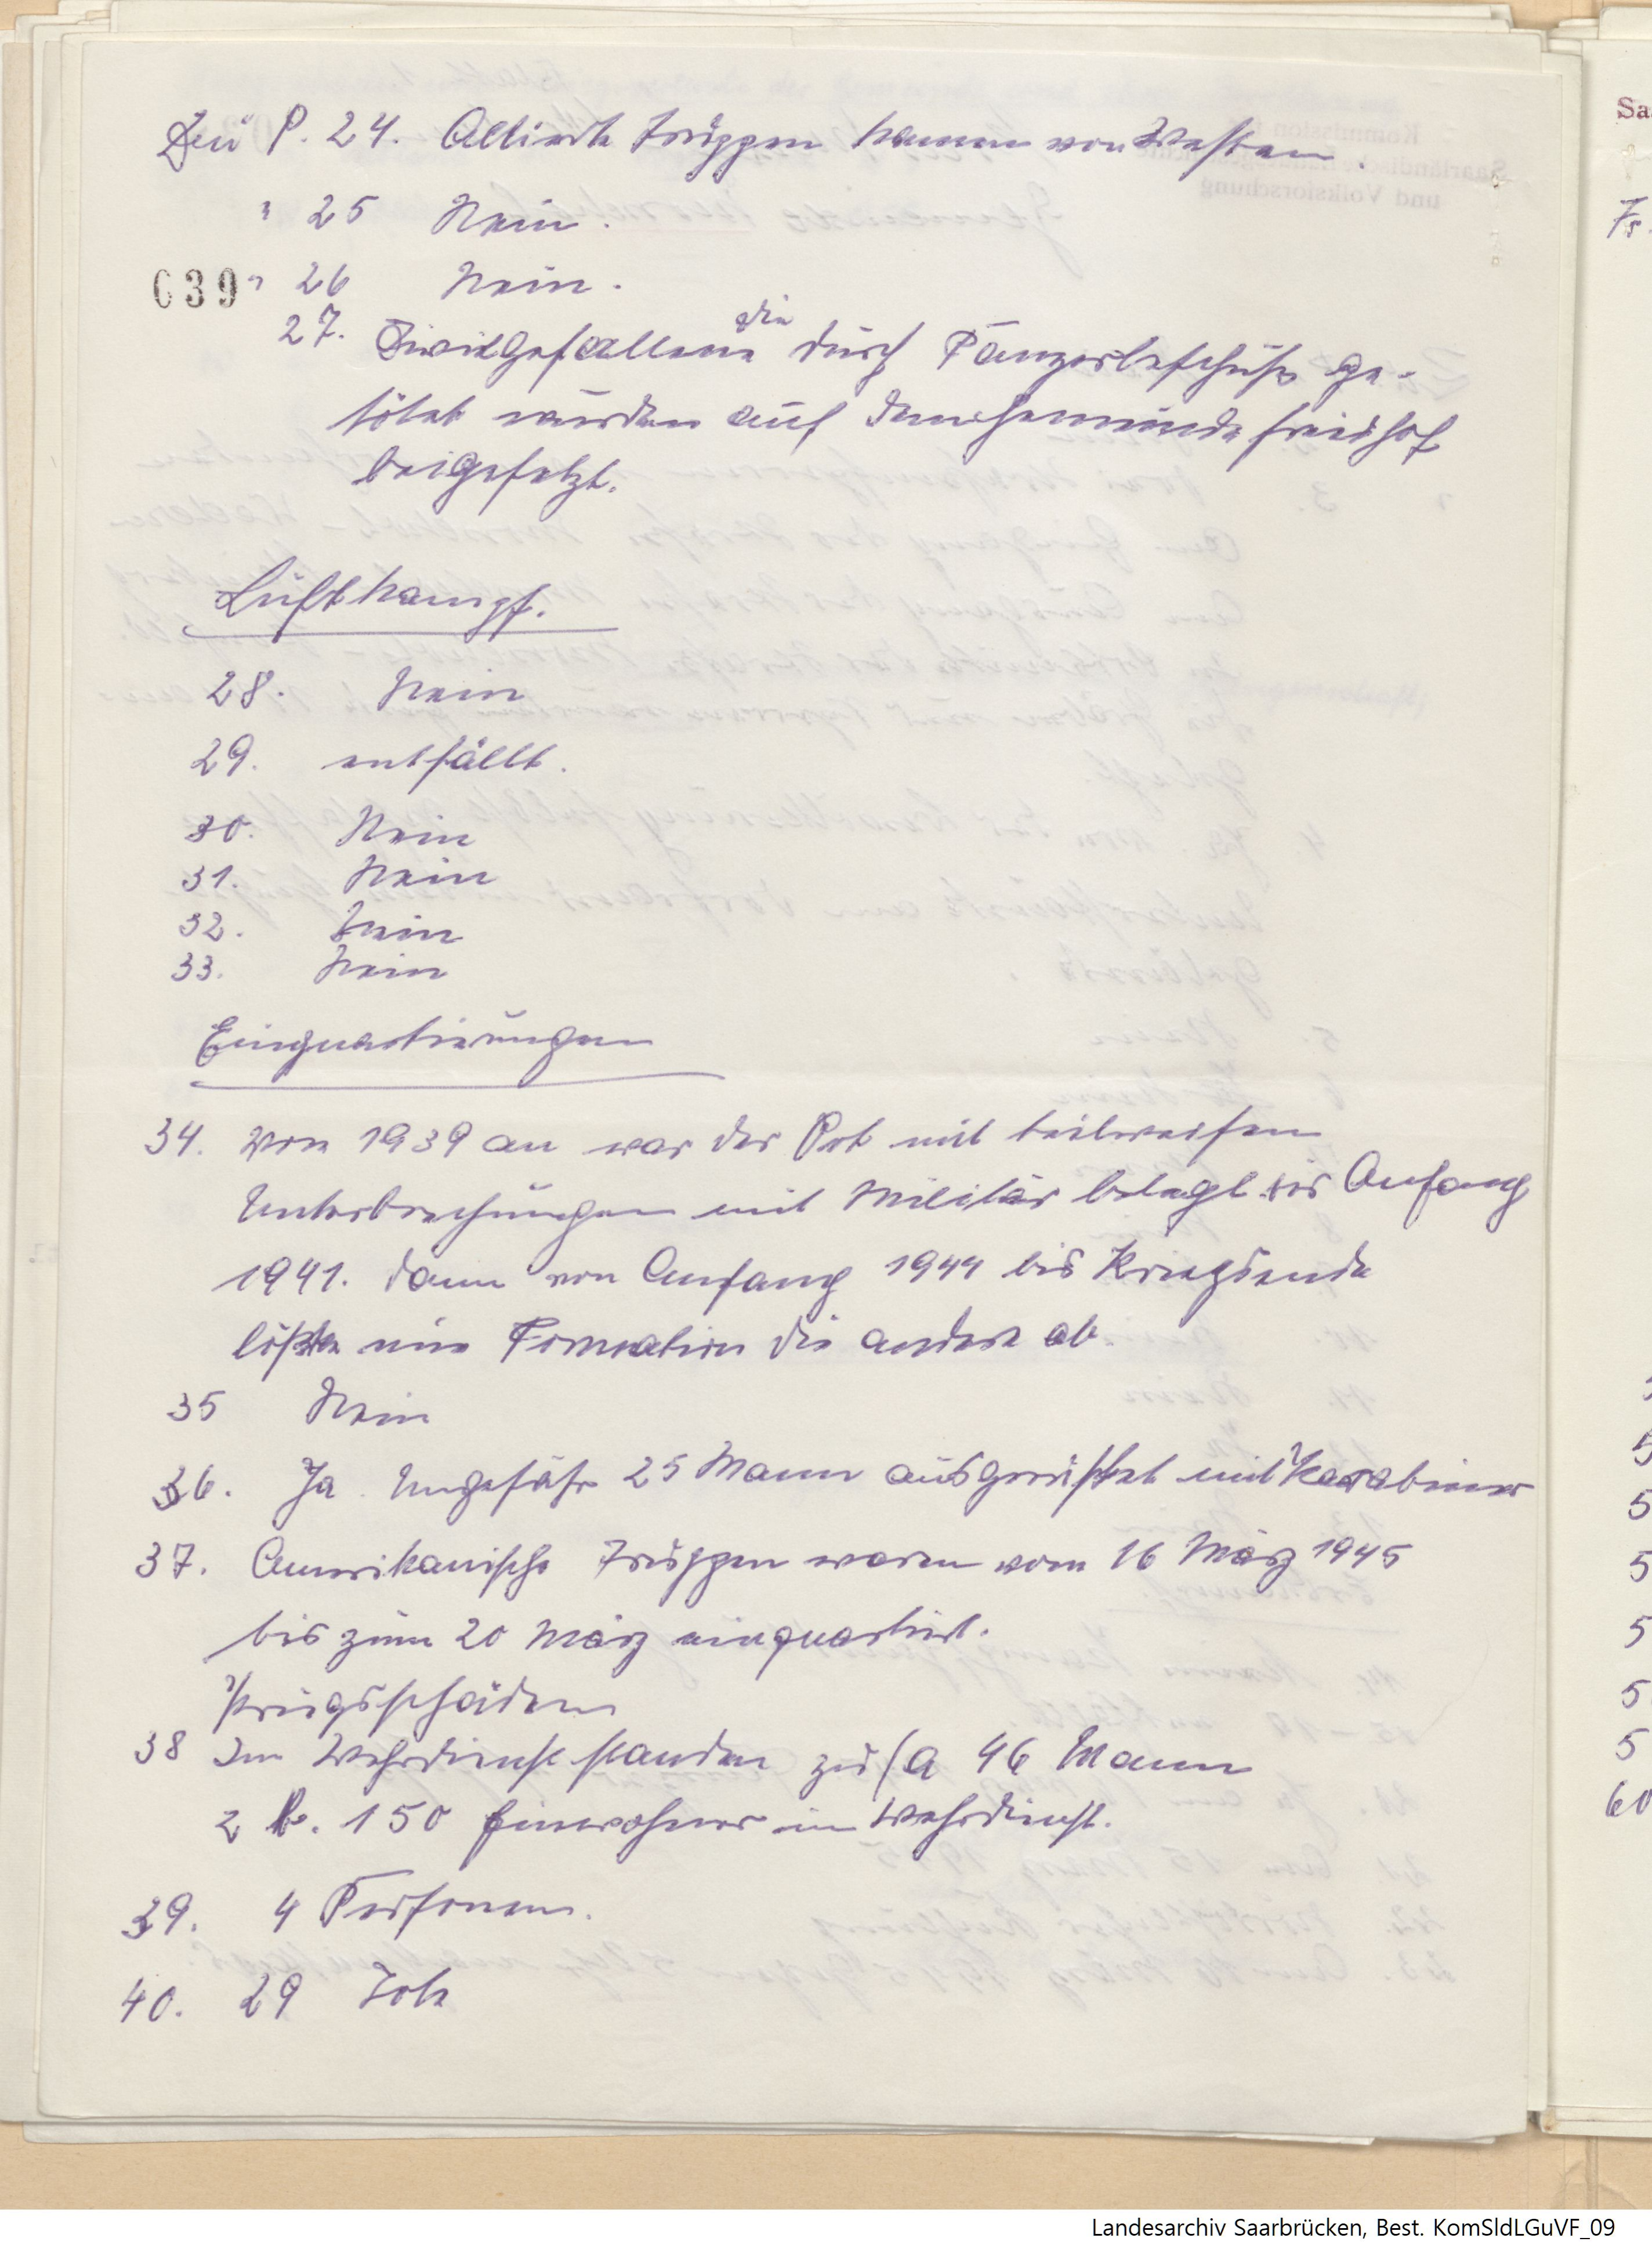 Zu P. 24. Alliierte Truppen kamen von Westen.
" 25 Nein.
639 " 26 Nein.
27. Zivilgefallene die durch Panzerbeschuss ge-
tötet wurden auf dem Gemeindefriedhof
beigesetzt.
Luftkampf.
28. Nein
29. entfällt.
30. Nein
31. Nein
32. Nein
33. Nein
Einquartierungen
34. Von 1939 an war der Ort mit teilweisen
Unterbrechungen mit Militär belegt bis Anfang
1941. dann von Anfang 1944 bis Kriegsende
lößte eine Formation die andere ab.
35 Nein
36. Ja. Ungefähr 25 Mann ausgerüstet mit Karabiner
37. Amerikanische Truppen waren vom 16 März 1945
bis zum 20 März einquartiert.
Kriegsschäden
38 Im Wehrdienst standen zu (a 46 Mann
z b. 150 Einwohner im Wehrdienst.
39. 4 Personen.
40. 29 Tote
Landesarchiv Saarbrücken, Best. KomSldLGuVF_09